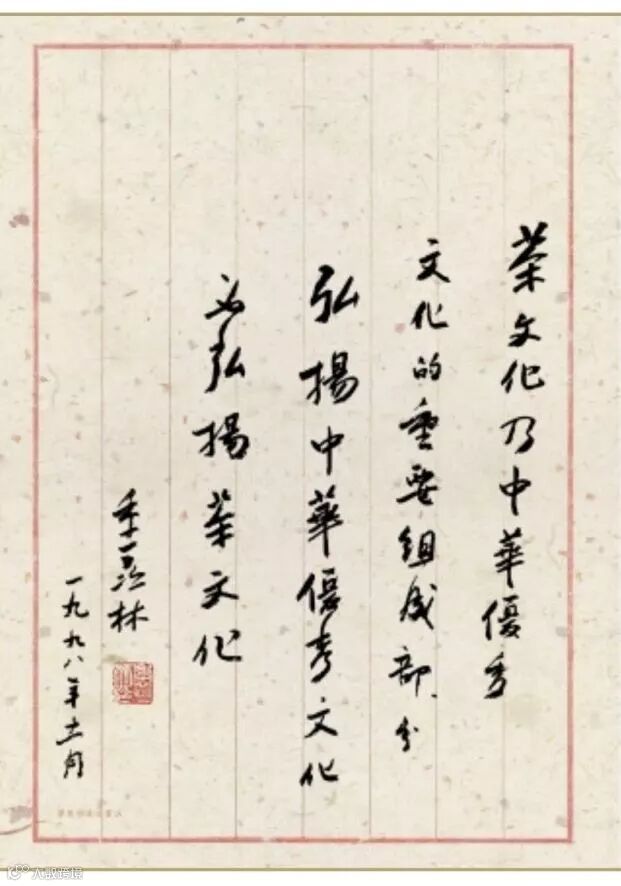 茶文化乃中華優秀
文化的重要组成部分
弘揚中華優秀文化
必弘揚茶文化
季羡林
一九九八年十一月
大数跨境